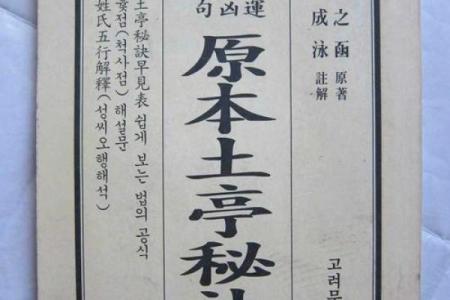 之菡 原著
成泳 註解
고려문
運凶句
原本土亭秘
土亭秘訣早見表 쉽게 보는 법의 공식
(척사점) 해설문
姓氏五行解釋(성씨오행해석)